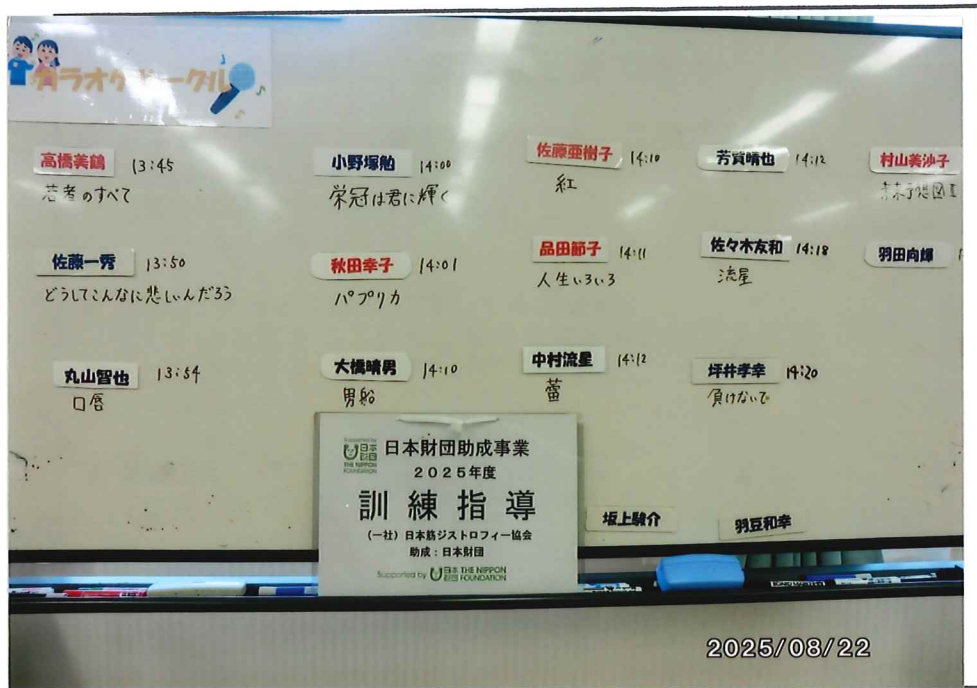 カラオケサークル
高橋美鶴 13:45
若者のすべて
佐藤一秀 13:50
どうしてこんなに悲しいんだろう
丸山智也 13:54
口唇
小野塚勉 14:00
栄冠は君に輝く
秋田幸子 14:01
パプリカ
大橋晴男 14:10
男船
佐藤亜樹子 14:10
紅
品田節子 14:11
人生いろいろ
中村流星 14:12
蕾
芳賀晴也 14:12
佐々木友和 14:18
流星
坪井孝幸 14:20
負けないで
村山美沙子
未来予想図Ⅱ
羽田向輝
坂上駿介
羽豆和幸
Supported by 日本財団 THE NIPPON FOUNDATION
日本財団助成事業
2025年度
訓練指導
(一社)日本筋ジストロフィー協会
助成:日本財団
Supported by 日本財団 THE NIPPON FOUNDATION
2025/08/22